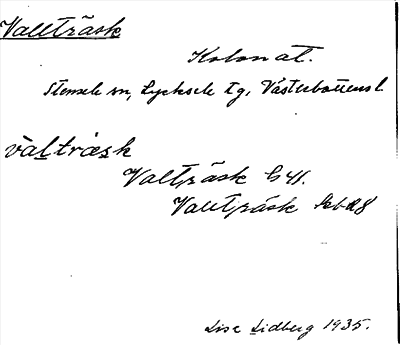 Vallträsk
Kolonat.
Stensele sn, Lycksele tg, Västerbottens l
vàltræsk
Valträsk G 41.
Vallträsk
Lisa Lidberg 1935.